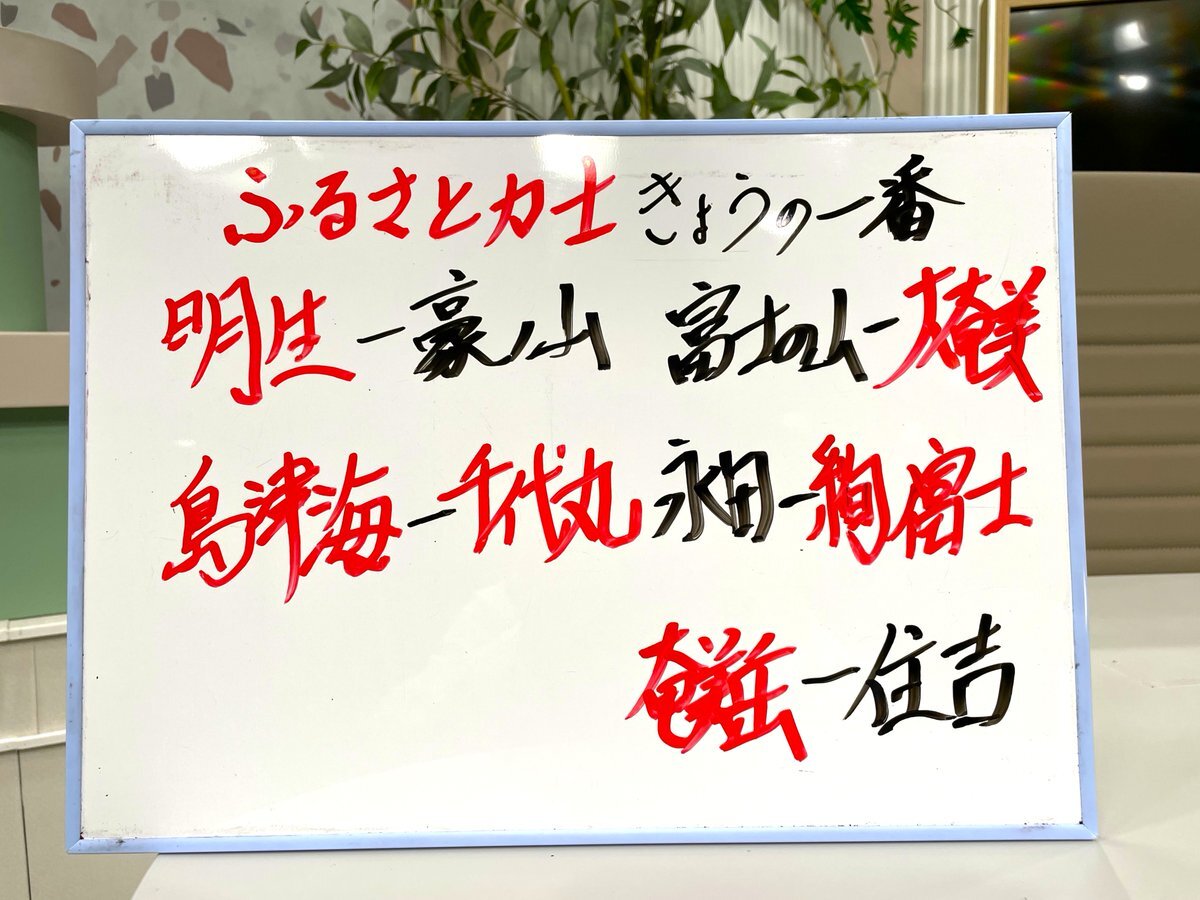 ふるさと力士 きょうの一番
明生ー豪ノ山 富士の山ー大奄美
島津海ー千代丸 永田ー絢富士
奄美岳ー住吉